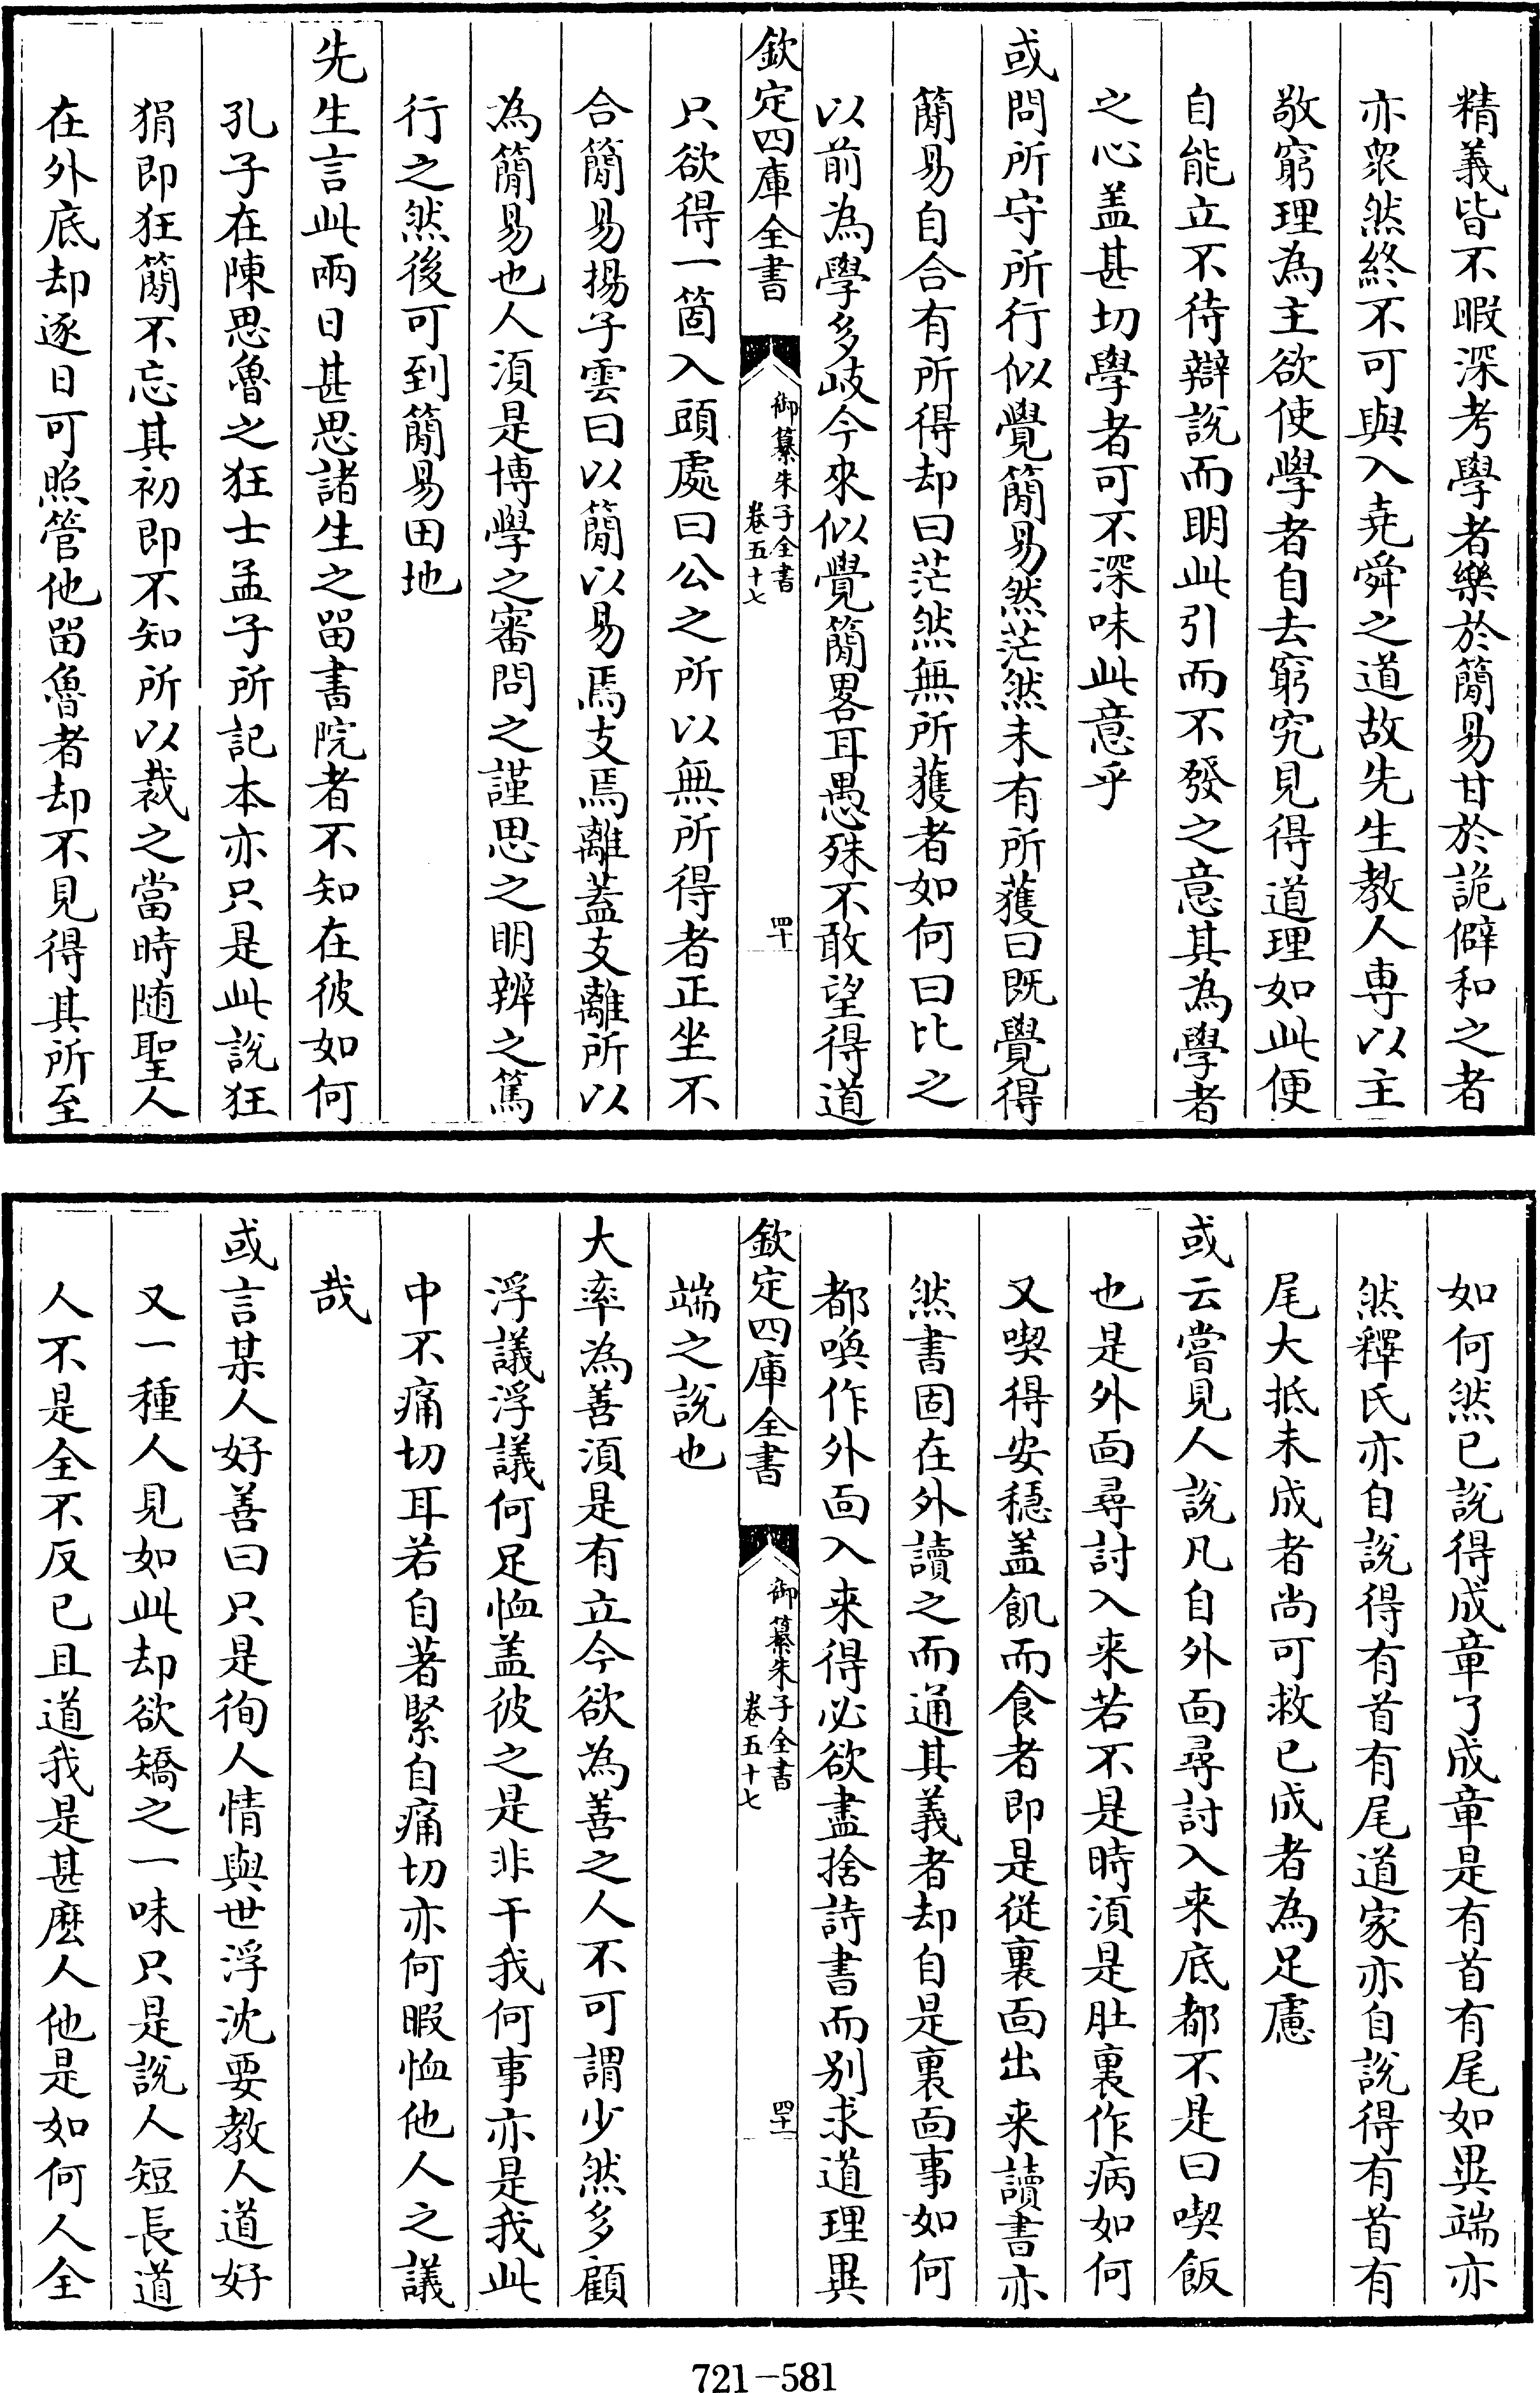 精義皆不暇深考學者樂於簡易甘於詭僻和之者
亦衆然終不可與入堯舜之道故先生教人専以主
敬窮理為主欲使學者自去窮究見得道理如此便
自能立不待辯說而明此引而不發之意其為學者
之心盖甚切學者可不深味此意乎
或問所守所行似覺簡易然茫然未有所獲曰既覺得
簡易自合有所得却曰茫然無所獲者如何曰比之
以前為學多岐今來似覺簡畧耳愚殊不敢望得道
欽定四庫全書
御纂朱子全書
卷五十七
四十
只欲得一箇入頭處曰公之所以無所得者正坐不
合簡易揚子雲曰以簡以易焉支焉離蓋支離所以
為簡易也人須是博學之審問之謹思之明辨之篤
行之然後可到簡易田地
先生言此兩日甚思諸生之留書院者不知在彼如何
孔子在陳思魯之狂士孟子所記本亦只是此說狂
狷即狂簡不忘其初即不知所以裁之當時随聖人
在外底却逐日可照管他留魯者却不見得其所至
如何然已說得成章了成章是有首有尾如異端亦
然釋氏亦自說得有首有尾道家亦自說得有首有
尾大抵未成者尚可救已成者為足慮
或云嘗見人說凡自外面尋討入来底都不是曰喫飯
也是外面尋討入来若不是時須是肚裏作病如何
又喫得安穩盖飢而食者即是從裏面出来讀書亦
然書固在外讀之而通其義者却自是裏面事如何
都喚作外面入来得必欲盡捨詩書而别求道理異
欽定四庫全書
御纂朱子全書
卷五十七
四十一
端之說也
大率為善須是有立今欲為善之人不可謂少然多顧
浮議浮議何足恤盖彼之是非干我何事亦是我此
中不痛切耳若自著緊自痛切亦何暇恤他人之議
哉
或言某人好善曰只是徇人情與世浮沈要教人道好
又一種人見如此却欲矯之一味只是說人短長道
人不是全不反已且道我是甚麽人他是如何人全
721-581